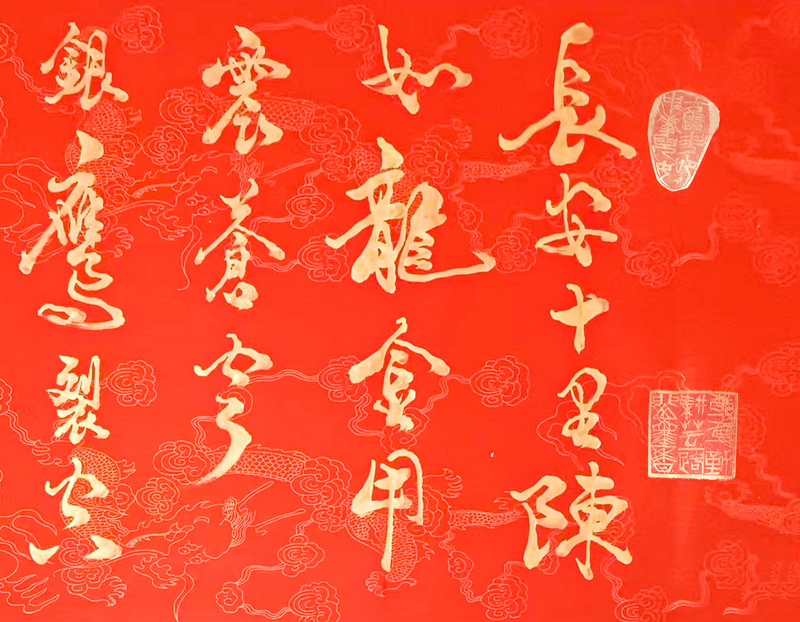 長安十里陳
如龍金甲
震蒼穹
銀鷹裂空